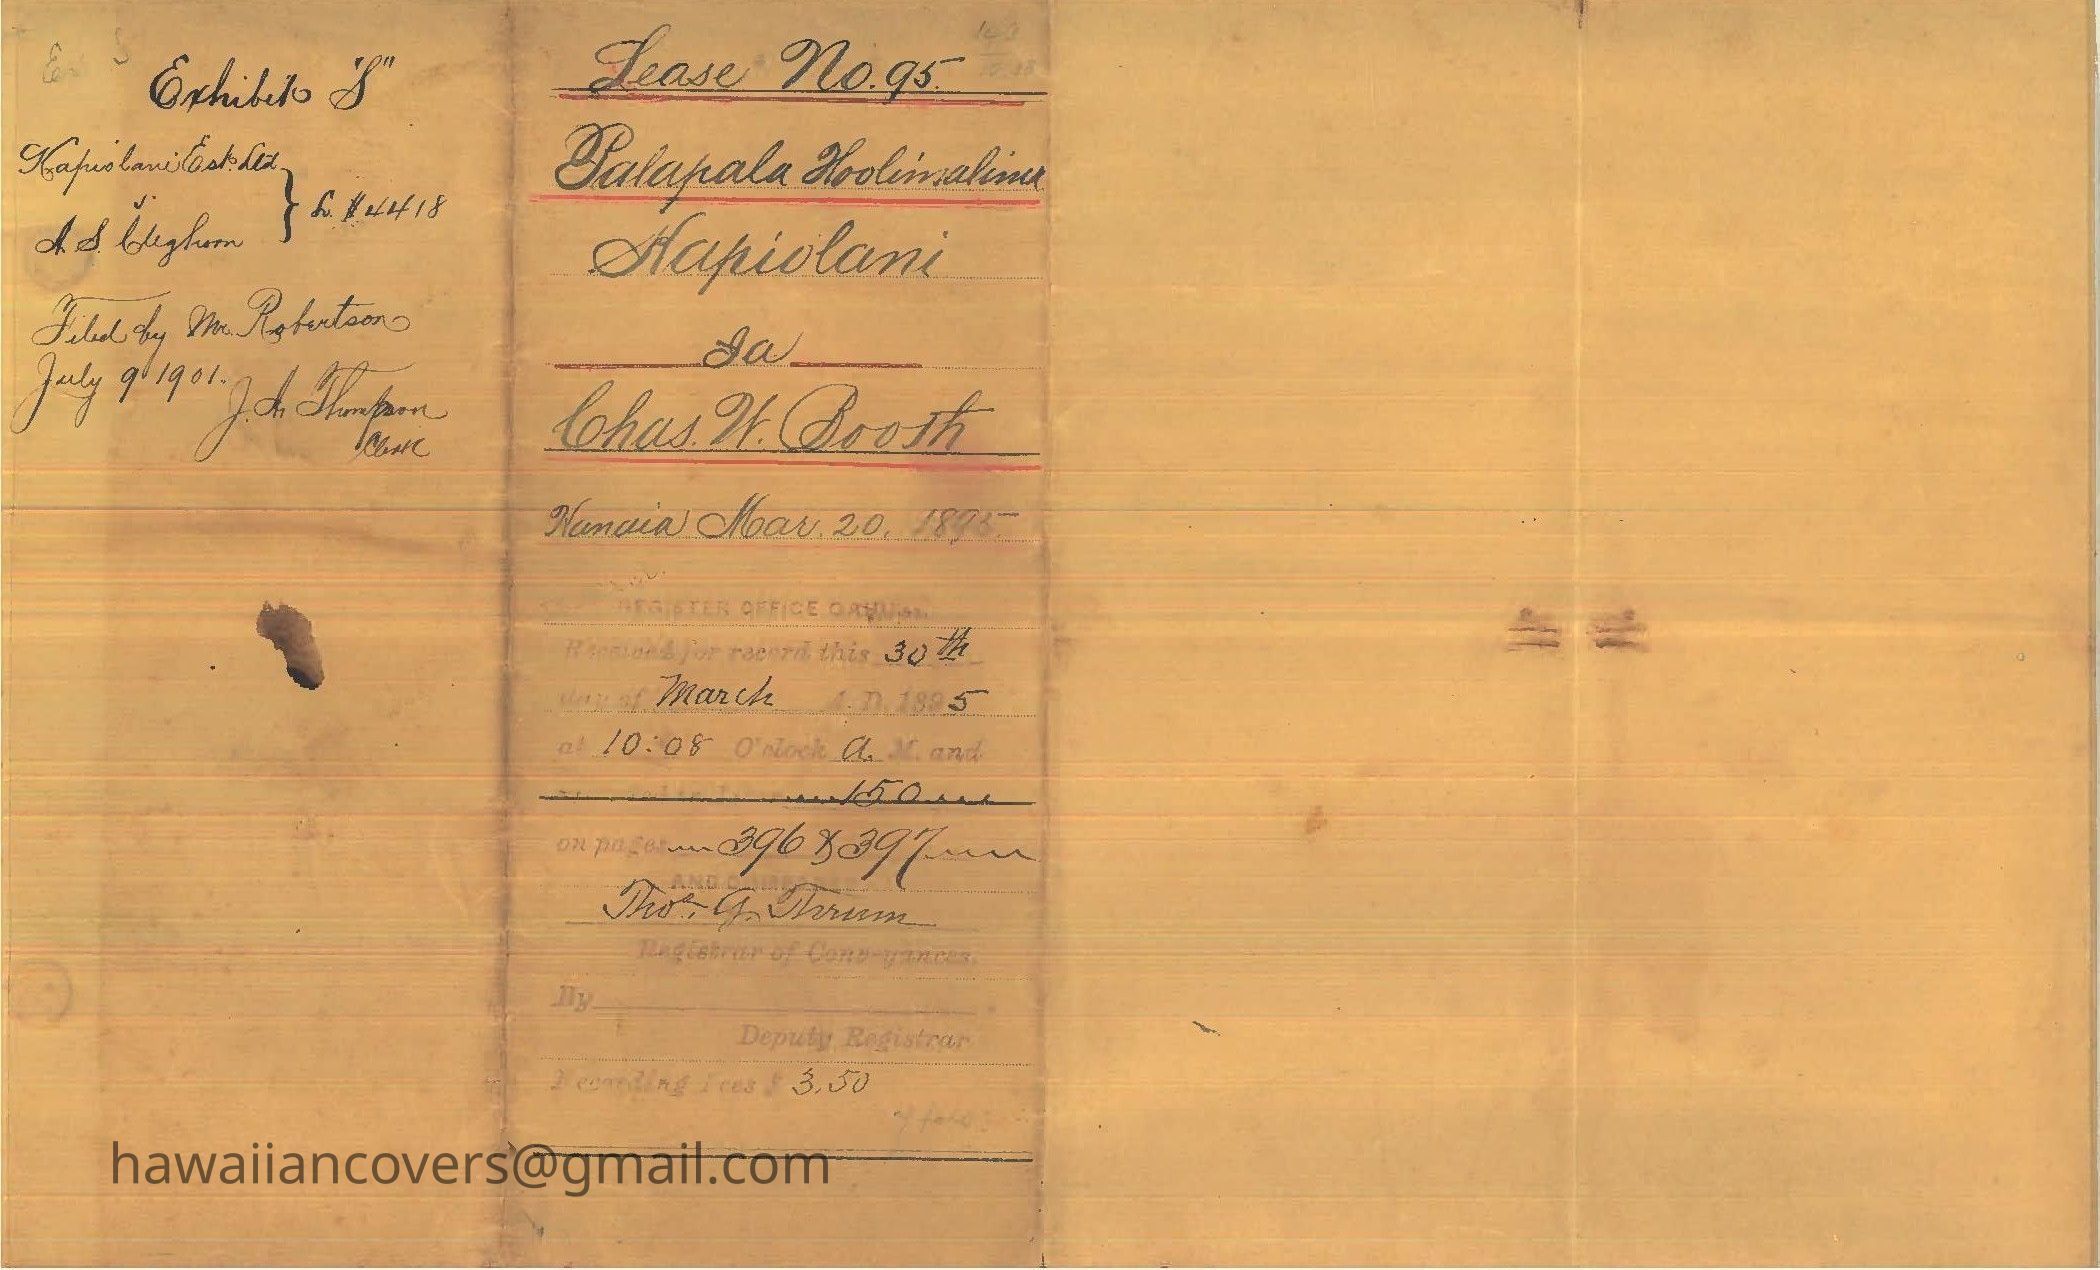 Exhibit "S"
Kapiolani Est. Ltd
v.
A. S. Cleghorn
L. #4418
Filed by Mr. Robertson
July 9 1901.
J. A. Thompson
Clerk
Lease No. 95.
Palapala Hoolimalima
Kapiolani
Ia
Chas. W. Booth
Mar. 20. 1895.
REGISTER OFFICE OAHU
Received for record this 30th
day of March A.D. 1895
at 10:08 O'clock A. M. and
150
on pages 396 & 397
AND
Thos. G. Thrum
Registrar of Conveyances.
By
Deputy Registrar
Recording Fees $ 3.50
hawaiiancovers@gmail.com